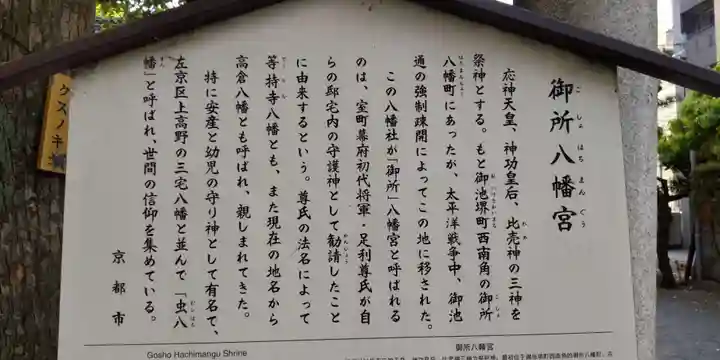 御所八幡宮
ごしょはちまんぐう
応神天皇、神功皇后、比売神の三神を
祭神とする。もと御池堺町西南角の御所
八幡町にあったが、太平洋戦争中、御池
通の強制疎開によってこの地に移された。
この八幡社が「御所」八幡宮と呼ばれる
のは、室町幕府初代将軍・足利尊氏が自
らの邸宅内の守護神として勧請したこと
に由来するという。尊氏の法名によって
等持寺八幡とも、また現在の地名から
高倉八幡とも呼ばれ、親しまれてきた。
特に安産と幼児の守り神として有名で、
左京区上高野の三宅八幡と並んで「虫八
幡」と呼ばれ、世間の信仰を集めている。
京都市
Gosho Hachimangu Shrine
御所八幡宮
クスノキ